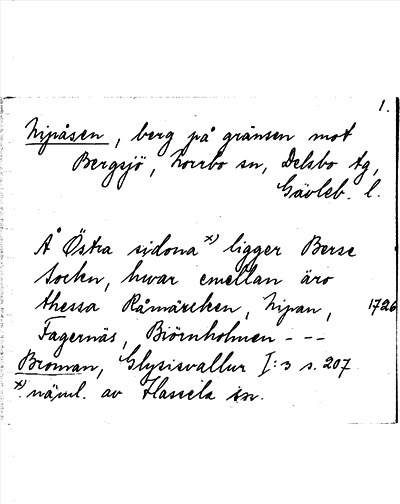 1.
Nipåsen, berg på gränsen mot
Bergsjö, Norrbo sn, Delsbo tg,
Gävleb. l.
Å Östra sidona x) ligger Berse
Socken, hwar emellan äro
thessa Råmärcken, Nipan, 1726
Fagernäs, Biörnholmen - - -
Broman, Glysisvallur I:3 s. 207
x) näml. av Hassela sn.